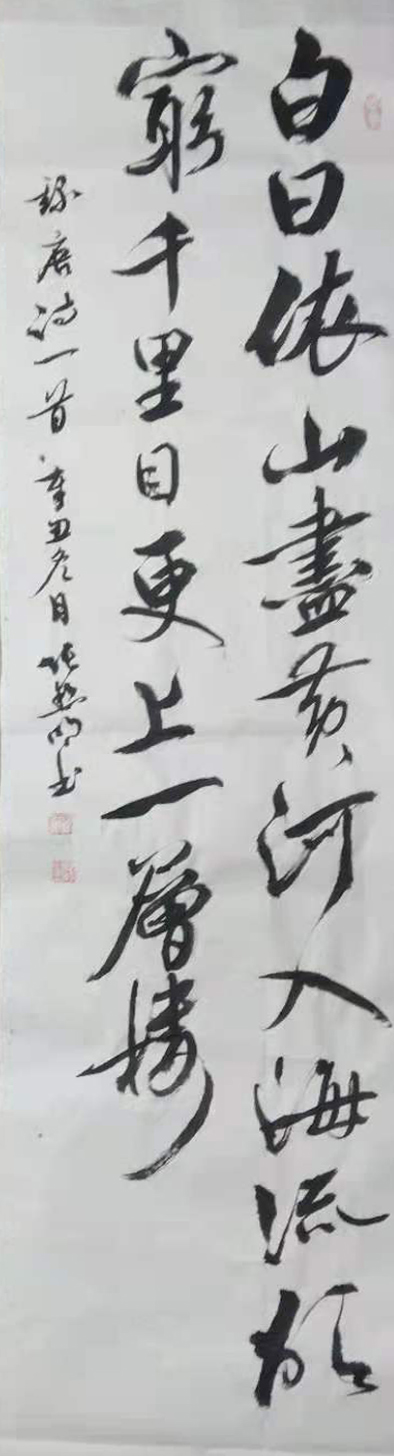 白日依山盡黄河入海流欲
窮千里目更上一層樓
錄唐诗一首辛丑冬月张明书